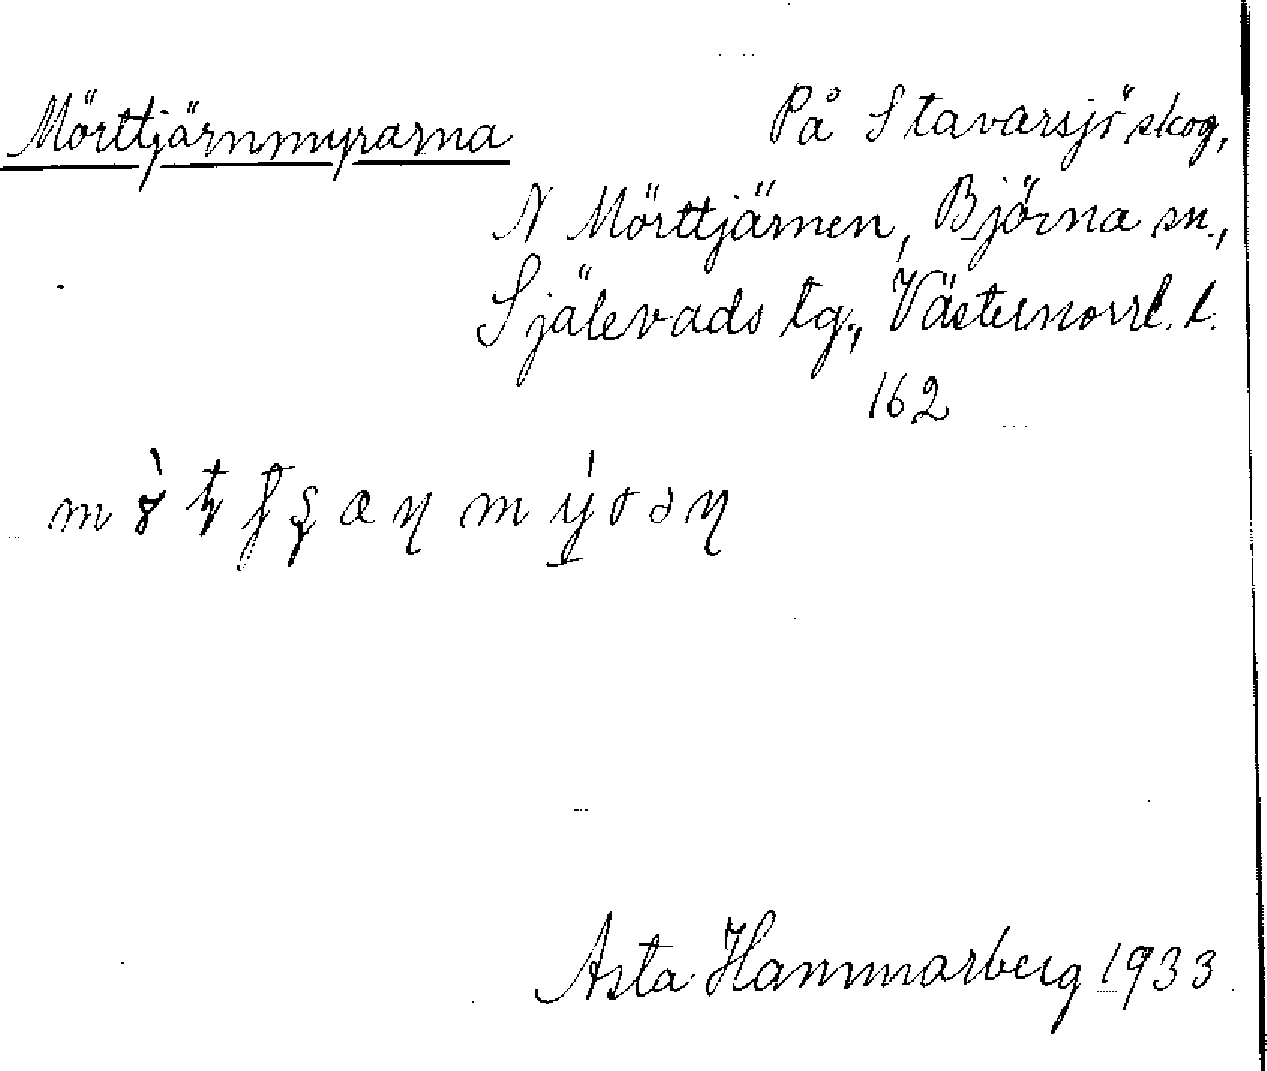 Mörttjärnmyrarna
På Stavarsjö skog,
N Mörttjärnen, Björna sn.,
Själevads tg., Västernorrl. l.
162
Asta Hammarberg 1933